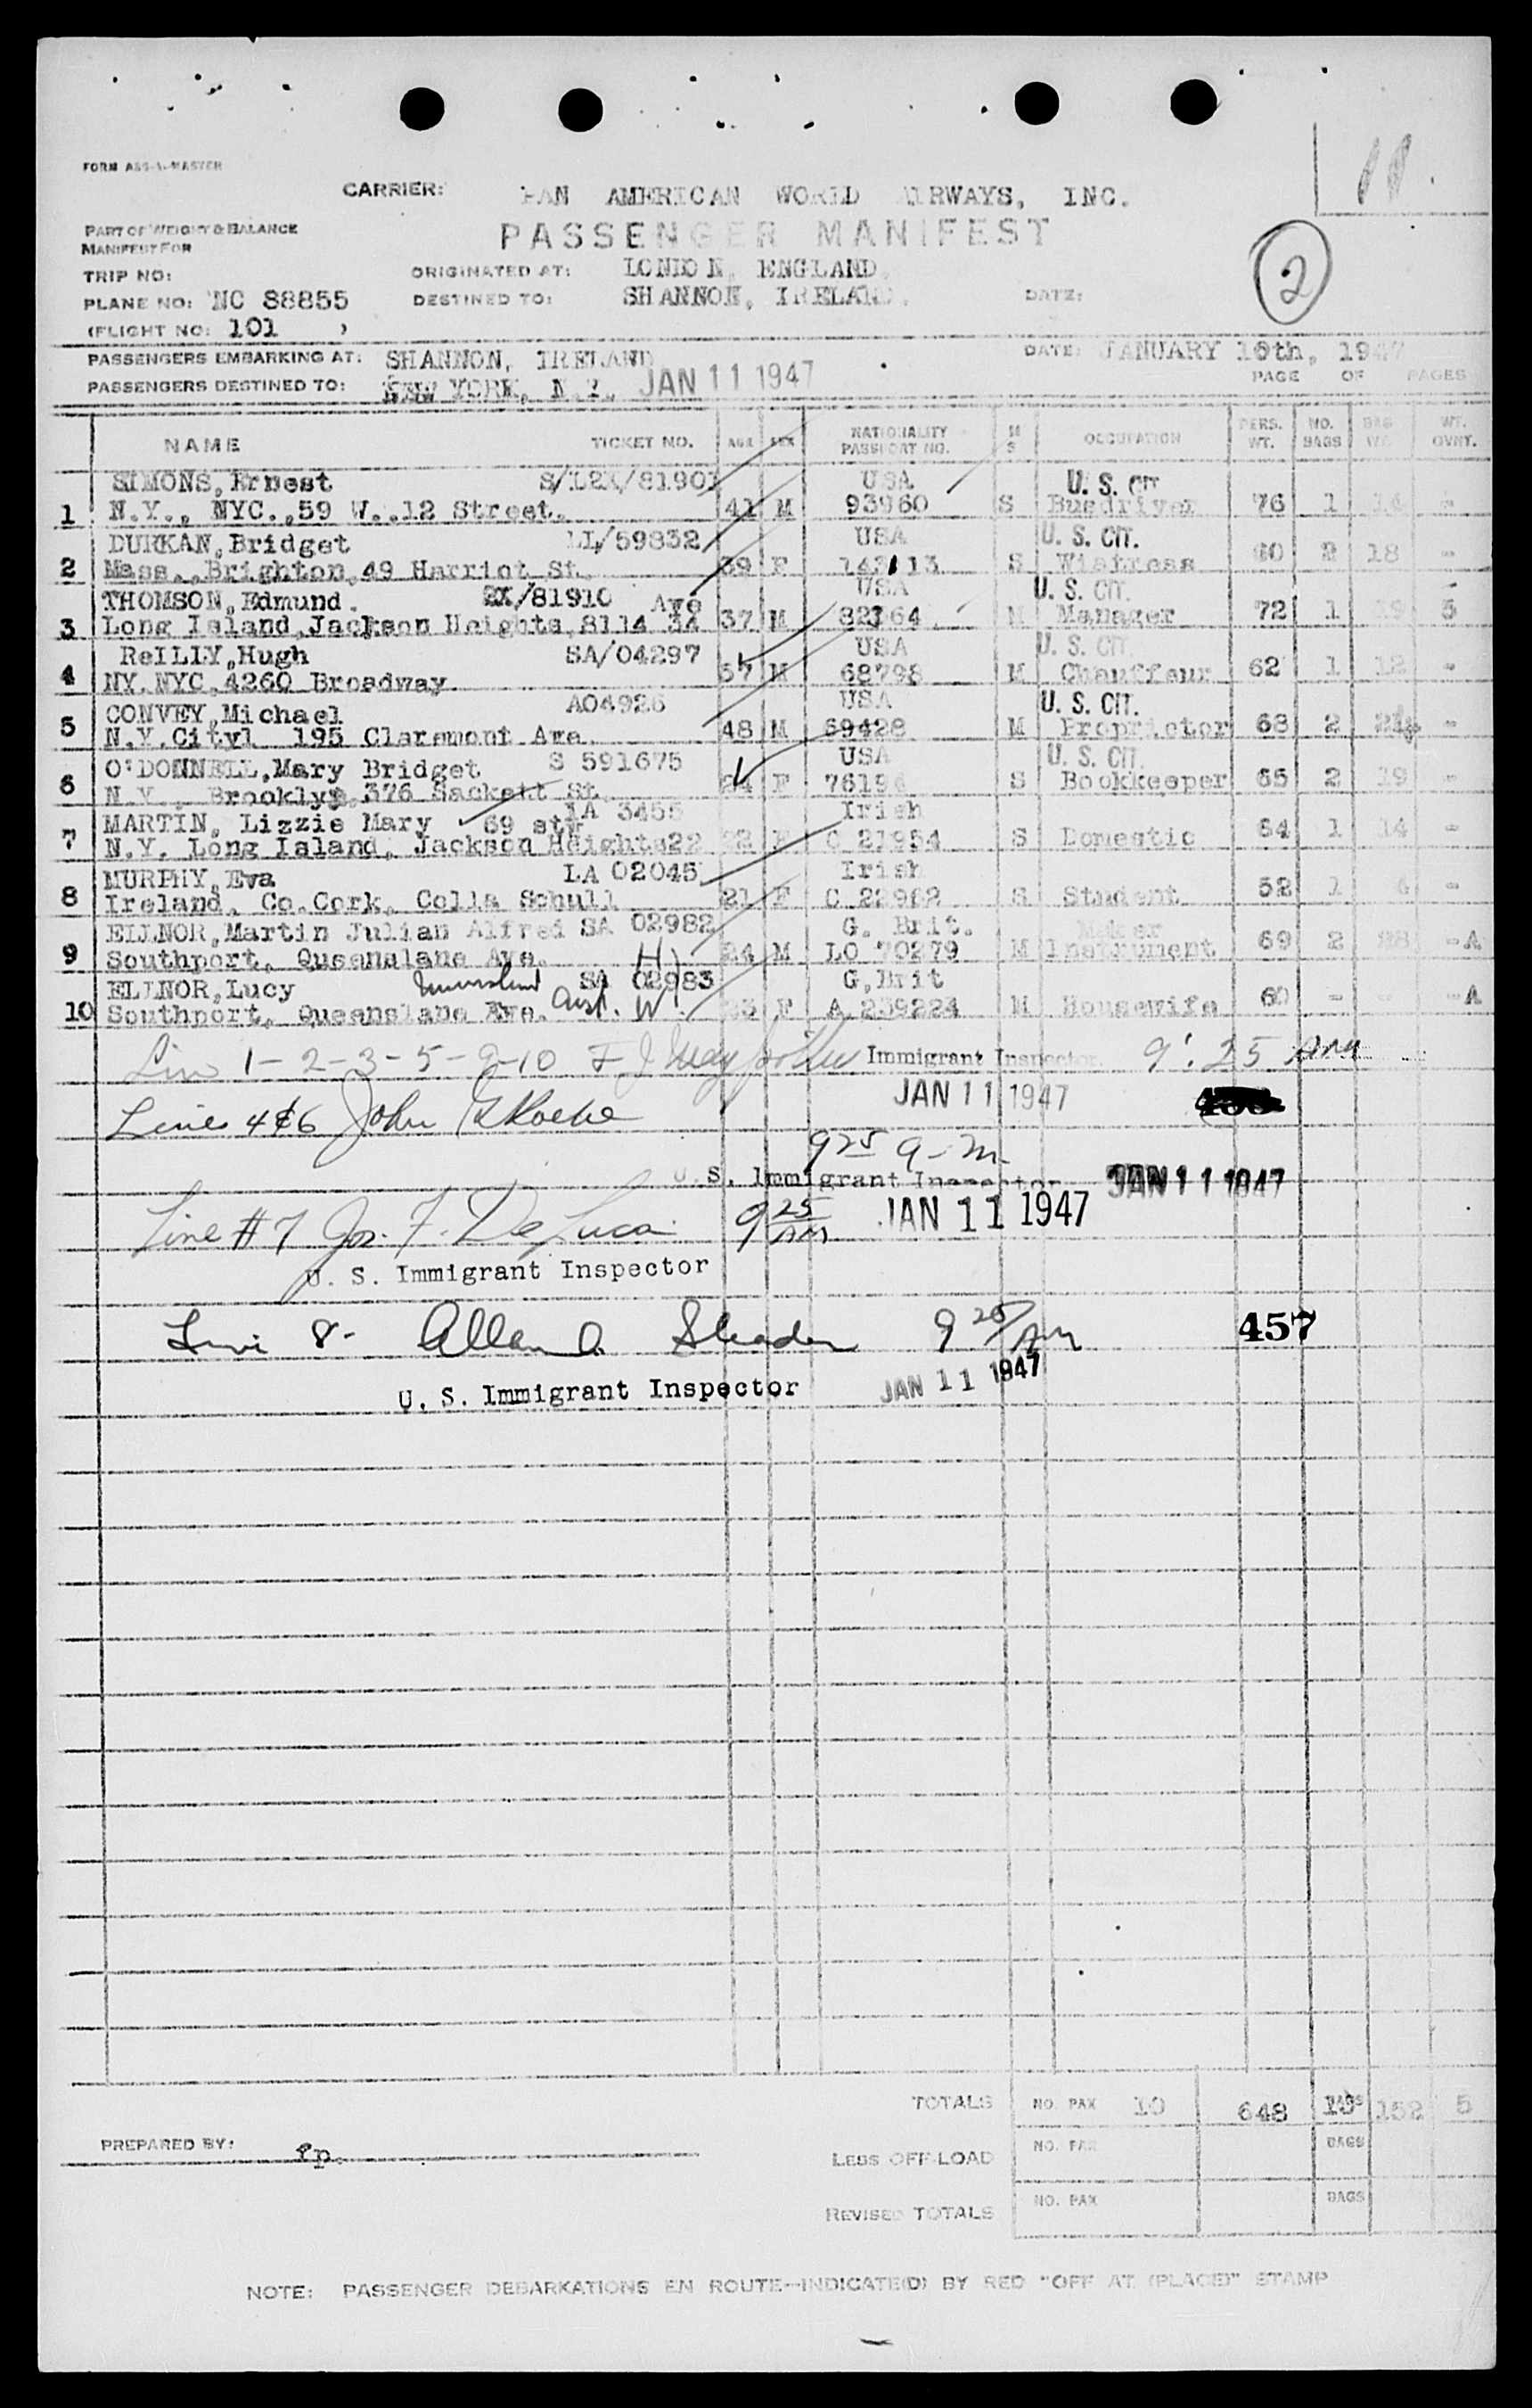 11.
FORM A&S-1-MASTER
CARRIER: PAN AMERICAN WORLD AIRWAYS, INC.
PASSENGER MANIFEST
PART OF WEIGHT & BALANCE
MANIFEST FOR
2
TRIP NO: ORIGINATED AT: LONDON, ENGLAND.
PLANE NO: NC 88855 DESTINED TO: SHANNON, IRELAND. DATE:
(FLIGHT NO: 101 )
PASSENGERS EMBARKING AT: SHANNON, IRELAND DATE: JANUARY 10th, 1947
PASSENGERS DESTINED TO: NEW YORK, N.Y. JAN 11 1947 PAGE OF PAGES
NAME TICKET NO. AGE SEX NATIONALITY PASSPORT NO. M S OCCUPATION PERS. WT. NO. BAGS BAG WT. WT. OVHT.
SIMONS, Ernest S/L2X/81901 USA U. S. CIT
1 N.Y., NYC., 59 W..12 Street. 41 M 93960 S Busdriver 76 1 14 -
DURKAN, Bridget LI/59832 USA U. S. CIT.
2 Mass., Brighton, 49 Harriot St. 39 F S Waitress 2 18 -
THOMSON, Edmund. 2X/81910 Ave USA U. S. CIT.
3 Long Island, Jackson Heights, 8114 34 37 M M Manager 72 1 19 5
ReILLY, Hugh SA/04297 USA U. S. CIT.
4 NY. NYC, 4260 Broadway. 57 M 68798 M Chauffeur 62 1 12 -
CONVEY, Michael A04926 USA U. S. CIT.
5 N.Y. City1 195 Claremont Ave. 48 M 69428 M Proprietor 68 2 -
O'DONNELL, Mary Bridget S 591675 USA U. S. CIT.
6 N.Y., Brooklyn, 376 Sackett St. 24 F 76196 S Bookkeeper 65 2 19 -
MARTIN, Lizzie Mary 69 st IA 3455 Irish
7 N.Y. Long Island, Jackson Heights22 22 F C 21954 S Domestic 64 1 14 -
MURPHY, Eva LA 02045 Irish
8 Ireland, Co.Cork, Colla Schull 21 F C 22962 S Student 52 1 -
ELLNOR, Martin Julian Alfred SA 02982 G. Brit. Maker
9 Southport, Queenslana Ave. H) 24 M LO 70279 M Instrument 69 2 28 -A
ELLNOR, Lucy Queensland SA 02983 G, Brit
10 Southport, Queenslana Ave. Aust. W) F A 239224 M Housewife 60 - - -A
Line 1-2-3-5-9-10 Immigrant Inspector 9:25 AM
JAN 11 1947
Lines 4&6 John
9 25 a-m
U. S. Immigrant Inspector JAN 11 1947
Line #7 Jos. F. DeLuca 9 25 AM JAN 11 1947
U. S. Immigrant Inspector
Line 8- Allan 9 25 AM 457
U. S. Immigrant Inspector JAN 11 1947
TOTALS NO. PAX 10 648 BAGS 152 5
PREPARED BY: fp. LESS OFF-LOAD NO. PAX BAGS
REVISED TOTALS NO. PAX BAGS
NOTE: PASSENGER DEBARKATIONS EN ROUTE—INDICATE(D) BY RED "OFF AT (PLACE)" STAMP